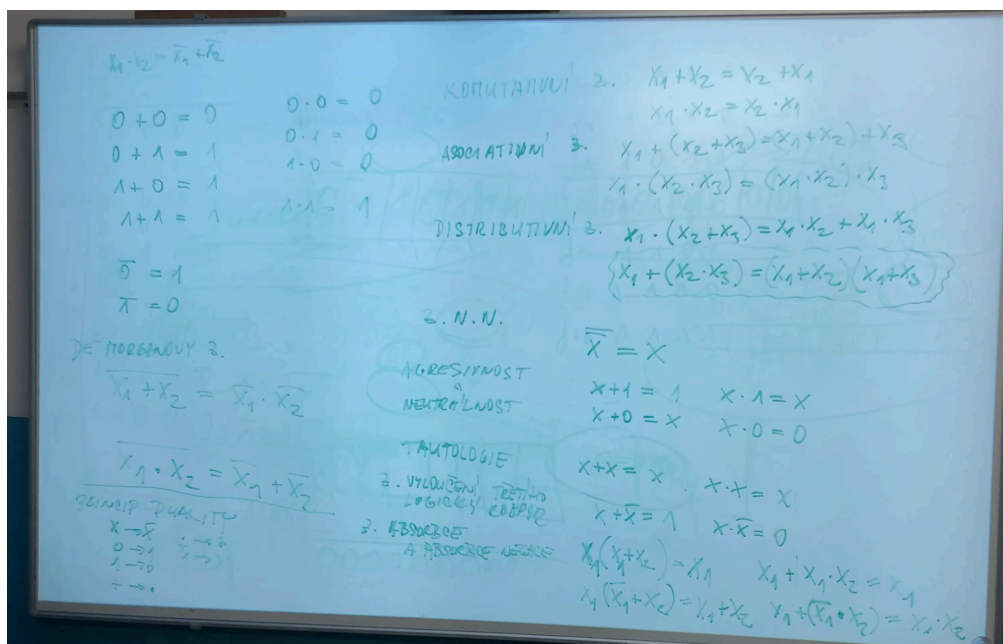 x₁·x₂ = x̅₁ + x̅₂
0+0 = 0
0+1 = 1
1+0 = 1
1+1 = 1
0·0 = 0
0·1 = 0
1·0 = 0
1·1 = 1
0̅ = 1
1̅ = 0
DE MORGANOVY Z.
\overline{x₁+x₂} = x̅₁·x̅₂
\overline{x₁·x₂} = x̅₁+x̅₂
PRINCIP DUALITY
x→x̅
0→1
1→0
+→·
·→+
KOMUTATIVNÍ Z. x₁+x₂ = x₂+x₁
x₁·x₂ = x₂·x₁
ASOCIATIVNÍ Z. x₁+(x₂+x₃)=(x₁+x₂)+x₃
x₁·(x₂·x₃)=(x₁·x₂)·x₃
DISTRIBUTIVNÍ Z. x₁·(x₂+x₃)=x₁·x₂+x₁·x₃
x₁+(x₂·x₃)=(x₁+x₂)(x₁+x₃)
Z.N.N. x̿ = x
AGRESIVNOST x+1 = 1 x·1=x
A
NEUTRÁLNOST x+0=x x·0=0
TAUTOLOGIE x+x=x x·x=x
Z. VYLOUČENÍ TŘETÍHO x+x̅=1 x·x̅=0
LOGICKÝ ROZPOR
Z. ABSORBCE x₁(x₁+x₂)=x₁ x₁+x₁·x₂=x₁
A ABSORBCE NEGACE x₁(x̅₁+x₂)=x₁+x₂ x₁+(x̅₁·x₂)=x₁·x₂